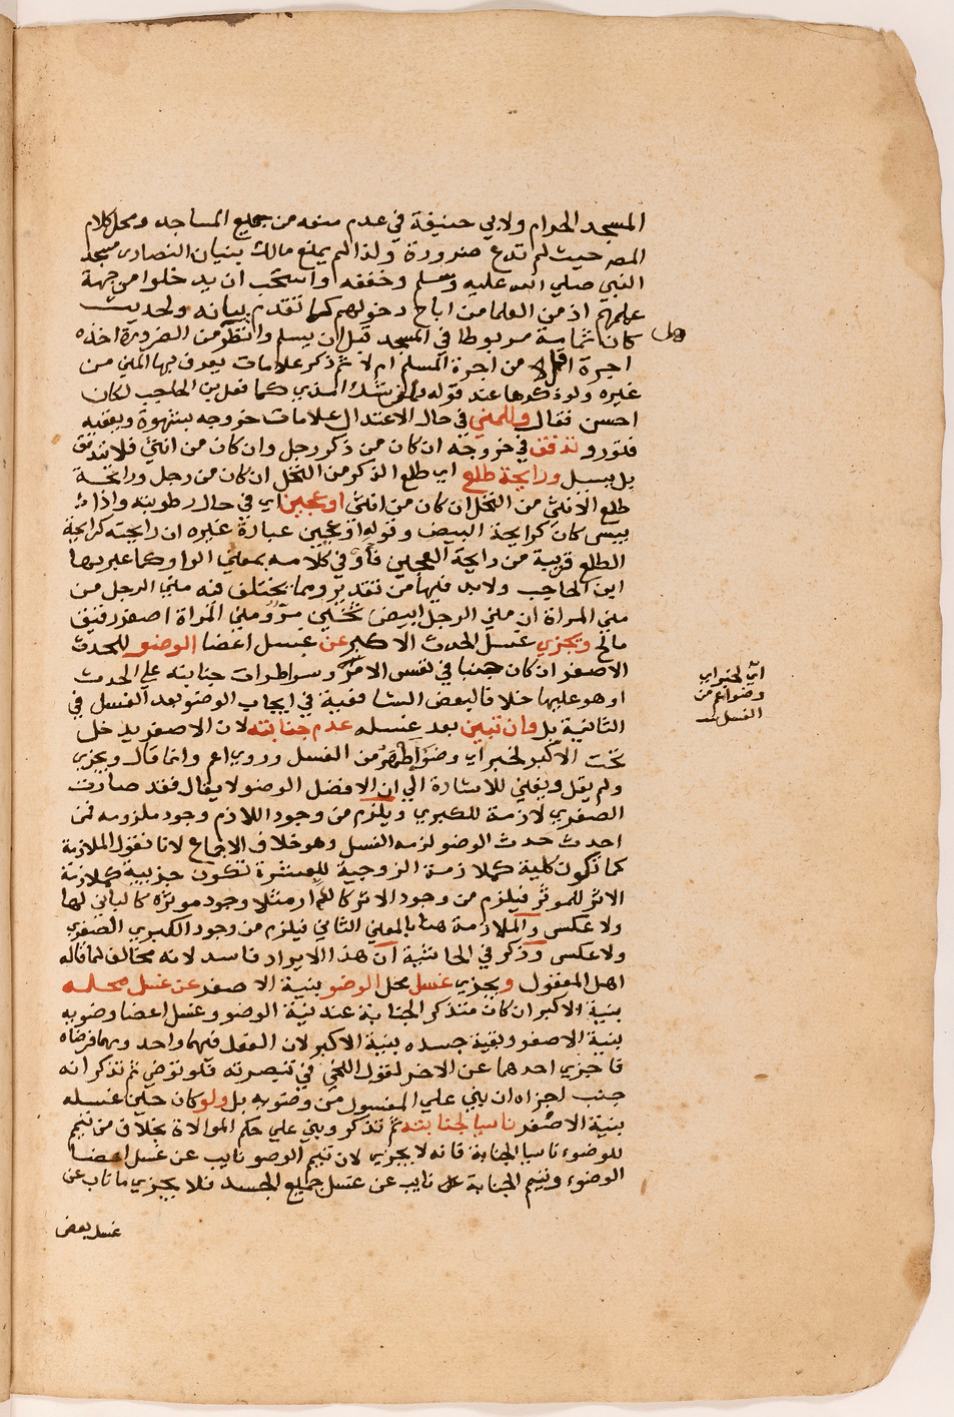 المسجد الحرام ولابي حنيفة في عدم منعه من جميع المساجد ومحل كلام
المص حيث لم تدع ضرورة ولذا لم يمنع مالك بنيان النصارى مسجد
النبي صلي الله عليه وسلم وخففه واستحب ان يدخلوا من جهة
عملهم اذ من العلما من اباح دخولهم كما تقدم بيانه ولحديث
كان ثمامة مربوطا في المسجد قبل ان يسلم وانظر من الضرورة اخذه
اجرة اقل من اجرة المسلم ام لا ثم ذكر علامات يعرف بها المني من
غيره ولو ذكرها عند قوله شك المذي كما فعل بن الحاجب لكان
احسن فقال وللمني في حال الاعتدال علامات خروجه بشهوة ويعقبه
فتور وتدفق في خروجه ان كان من ذكر رجل وان كان من انثي فلا تدفق
بل يسيل ورايحة طلع اي طلع الذكر من النخل ان كان من رجل ورايحة
طلع الانثي من النخل ان كان من انثي او عجين اي في حال رطوبته واذا
يبس كان كرايحة البيض وقوله او عجين عبارة غيره ان رايحته كرايحة
الطلع قريبة من رايحة العجين فاو في كلامه بمعني الواو كما عبر بها
ابن الحاجب ولابد فيها من تقدير ومما يختلف فيه مني الرجل من
مني المراة ان مني الرجل ابيض ثخين مر ومني المراة اصفر رقيق
مالح ويجزي غسل الحدث الاكبر عن غسل اعضا الوضو للحدث
الاصغر ان كان جنبا في نفس الامر وسوا طرات جنابته علي الحدث
او هو عليها خلافا لبعض الشافعية في ايجاب الوضو بعد الغسل في
الثانية بل وان تبين بعد غسله عدم جنابته لان الاصغر يدخل
تحت الاكبر لخبر اي وضوء اطهر من الغسل وروي اعم وانما قال ويجزي
ولم يقل ويغني للاشارة الي ان الافضل الوضو لا يقال فقد صارت
الصغري لازمة للكبري ويلزم من وجود اللازم وجود ملزومه فمن
احدث حدث الوضو لزمه الغسل وهو خلاف الاجماع لانا نقول الملازمة
كما تكون كلية كملازمة الزوجية للعشرة تكون جزيية كملازمة
الاثر للموثر فيلزم من وجود الاثر مثلا وجود موثره كالباني لها
ولا عكس والملازمة هنا بالمعني الثاني فيلزم من وجود الكبري الصغري
ولا عكس وذكر في الحاشية ان هذا الايراد فاسد لانه مخالف لما قاله
اهل المعقول ويجزي غسل محل الوضو بنية الاصغر عن غسل محله
بنية الاكبر ان كان متذكر الجنابة عند نية الوضو وغسل اعضا وضوبه
بنية الاصغر وبقية جسده بنية الاكبر لان الفعل فيهما واحد وهما فرضان
فاجزي احدهما عن الاخر لقول اللخمي في تبصرته فلو توضي ثم تذكر انه
جنب اجزاه ان يبني علي المغسول من وضويه بل ولو كان حين غسله
بنية الاصغر ناسيا لجنابته ثم تذكر وبني علي حكم الموالاة بخلاف من تيمم
للوضوء ناسيا الجنابة فانه لا يجزي لان تيمم الوضو نايب عن غسل اعضا
الوضوء وتيمم الجنابة نايب عن غسل جميع الجسد فلا يجزي ما ناب عن
غسل بعض
اي لخبر اي
وضوء اعم من
الغسل